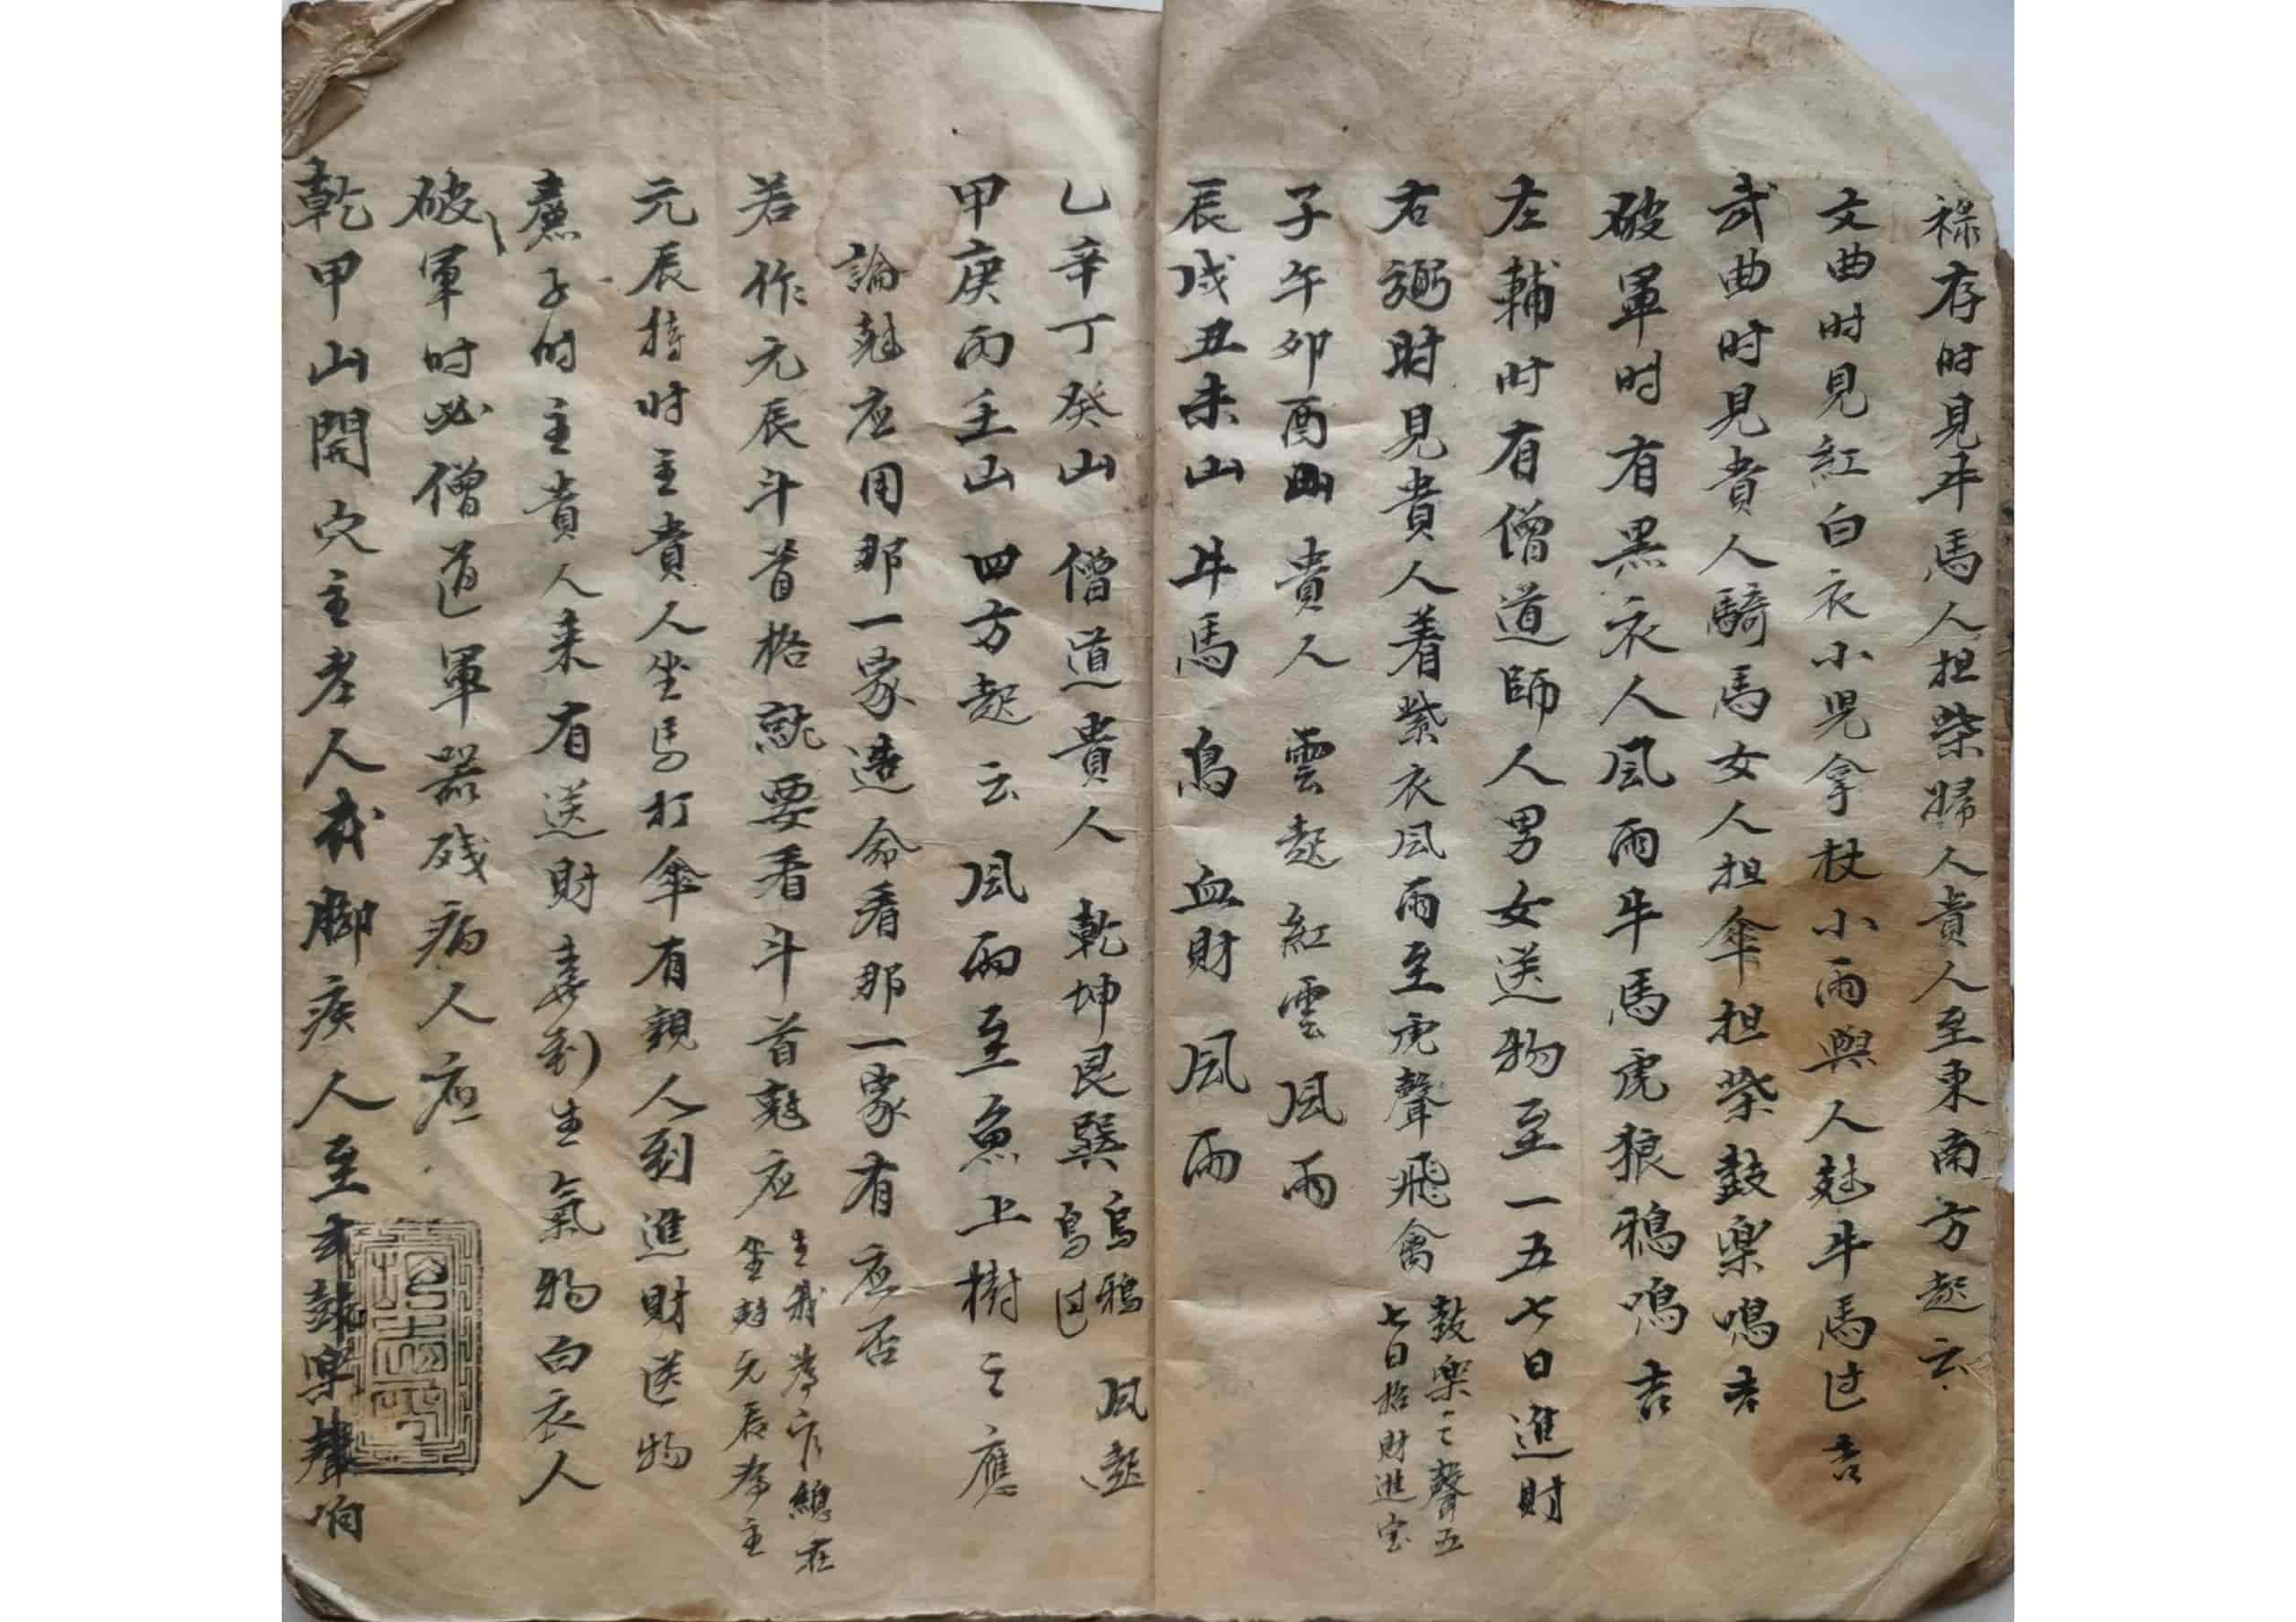 祿存时見牛馬人担柴婦人貴人至東南方起云
文曲时見紅白衣小児拿杖小雨與人尅牛馬过吉
武曲时見貴人騎馬女人担傘担柴鼓樂鳴吉
破軍时有黑衣人風雨牛馬虎狼鴉鳴吉
左輔时有僧道師人男女送物至一五七日進財
右弼时見貴人着紫衣風雨至虎聲飛禽
鼓樂之聲五
七日拾財進宝
子午卯酉山 貴人 雲起紅雲風雨
辰戌丑未山 牛馬 鳥 血財 風雨
乙辛丁癸山 僧道貴人 乾坤艮巽
烏鴉
鳥过
風起
甲庚丙壬山 四方起云 風雨至魚上樹之應
論尅应用那一家造命看那一家有应否
若作元辰斗首格就要看斗首尅应
生我為官總在
坐尅元辰為主
元辰持时主貴人坐馬打傘有親人到進財送物
廉子时主貴人来有送財喜到生氣物白衣人
破軍时必僧道軍器残病人应
乾甲山開穴主老人或脚疾人至或鼓樂聲响